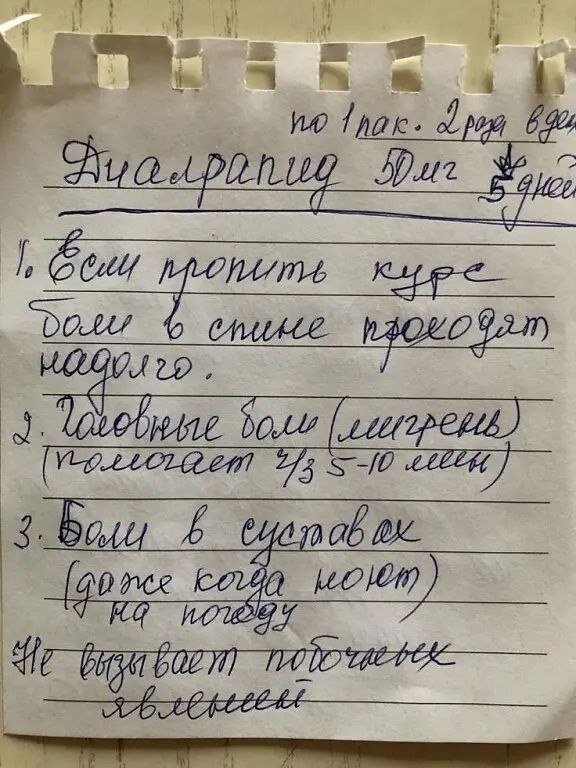 по 1 пак. 2 раза в ден
Диалрапид 50мг 5 дней
1. Если пропить курс
боли в спине проходят
надолго.
2. Головные боли (мигрень)
(помогает ч/з 5-10 мин)
3. Боли в суставах
(даже когда ноют)
на погоду
Не вызывает побочных
явлений